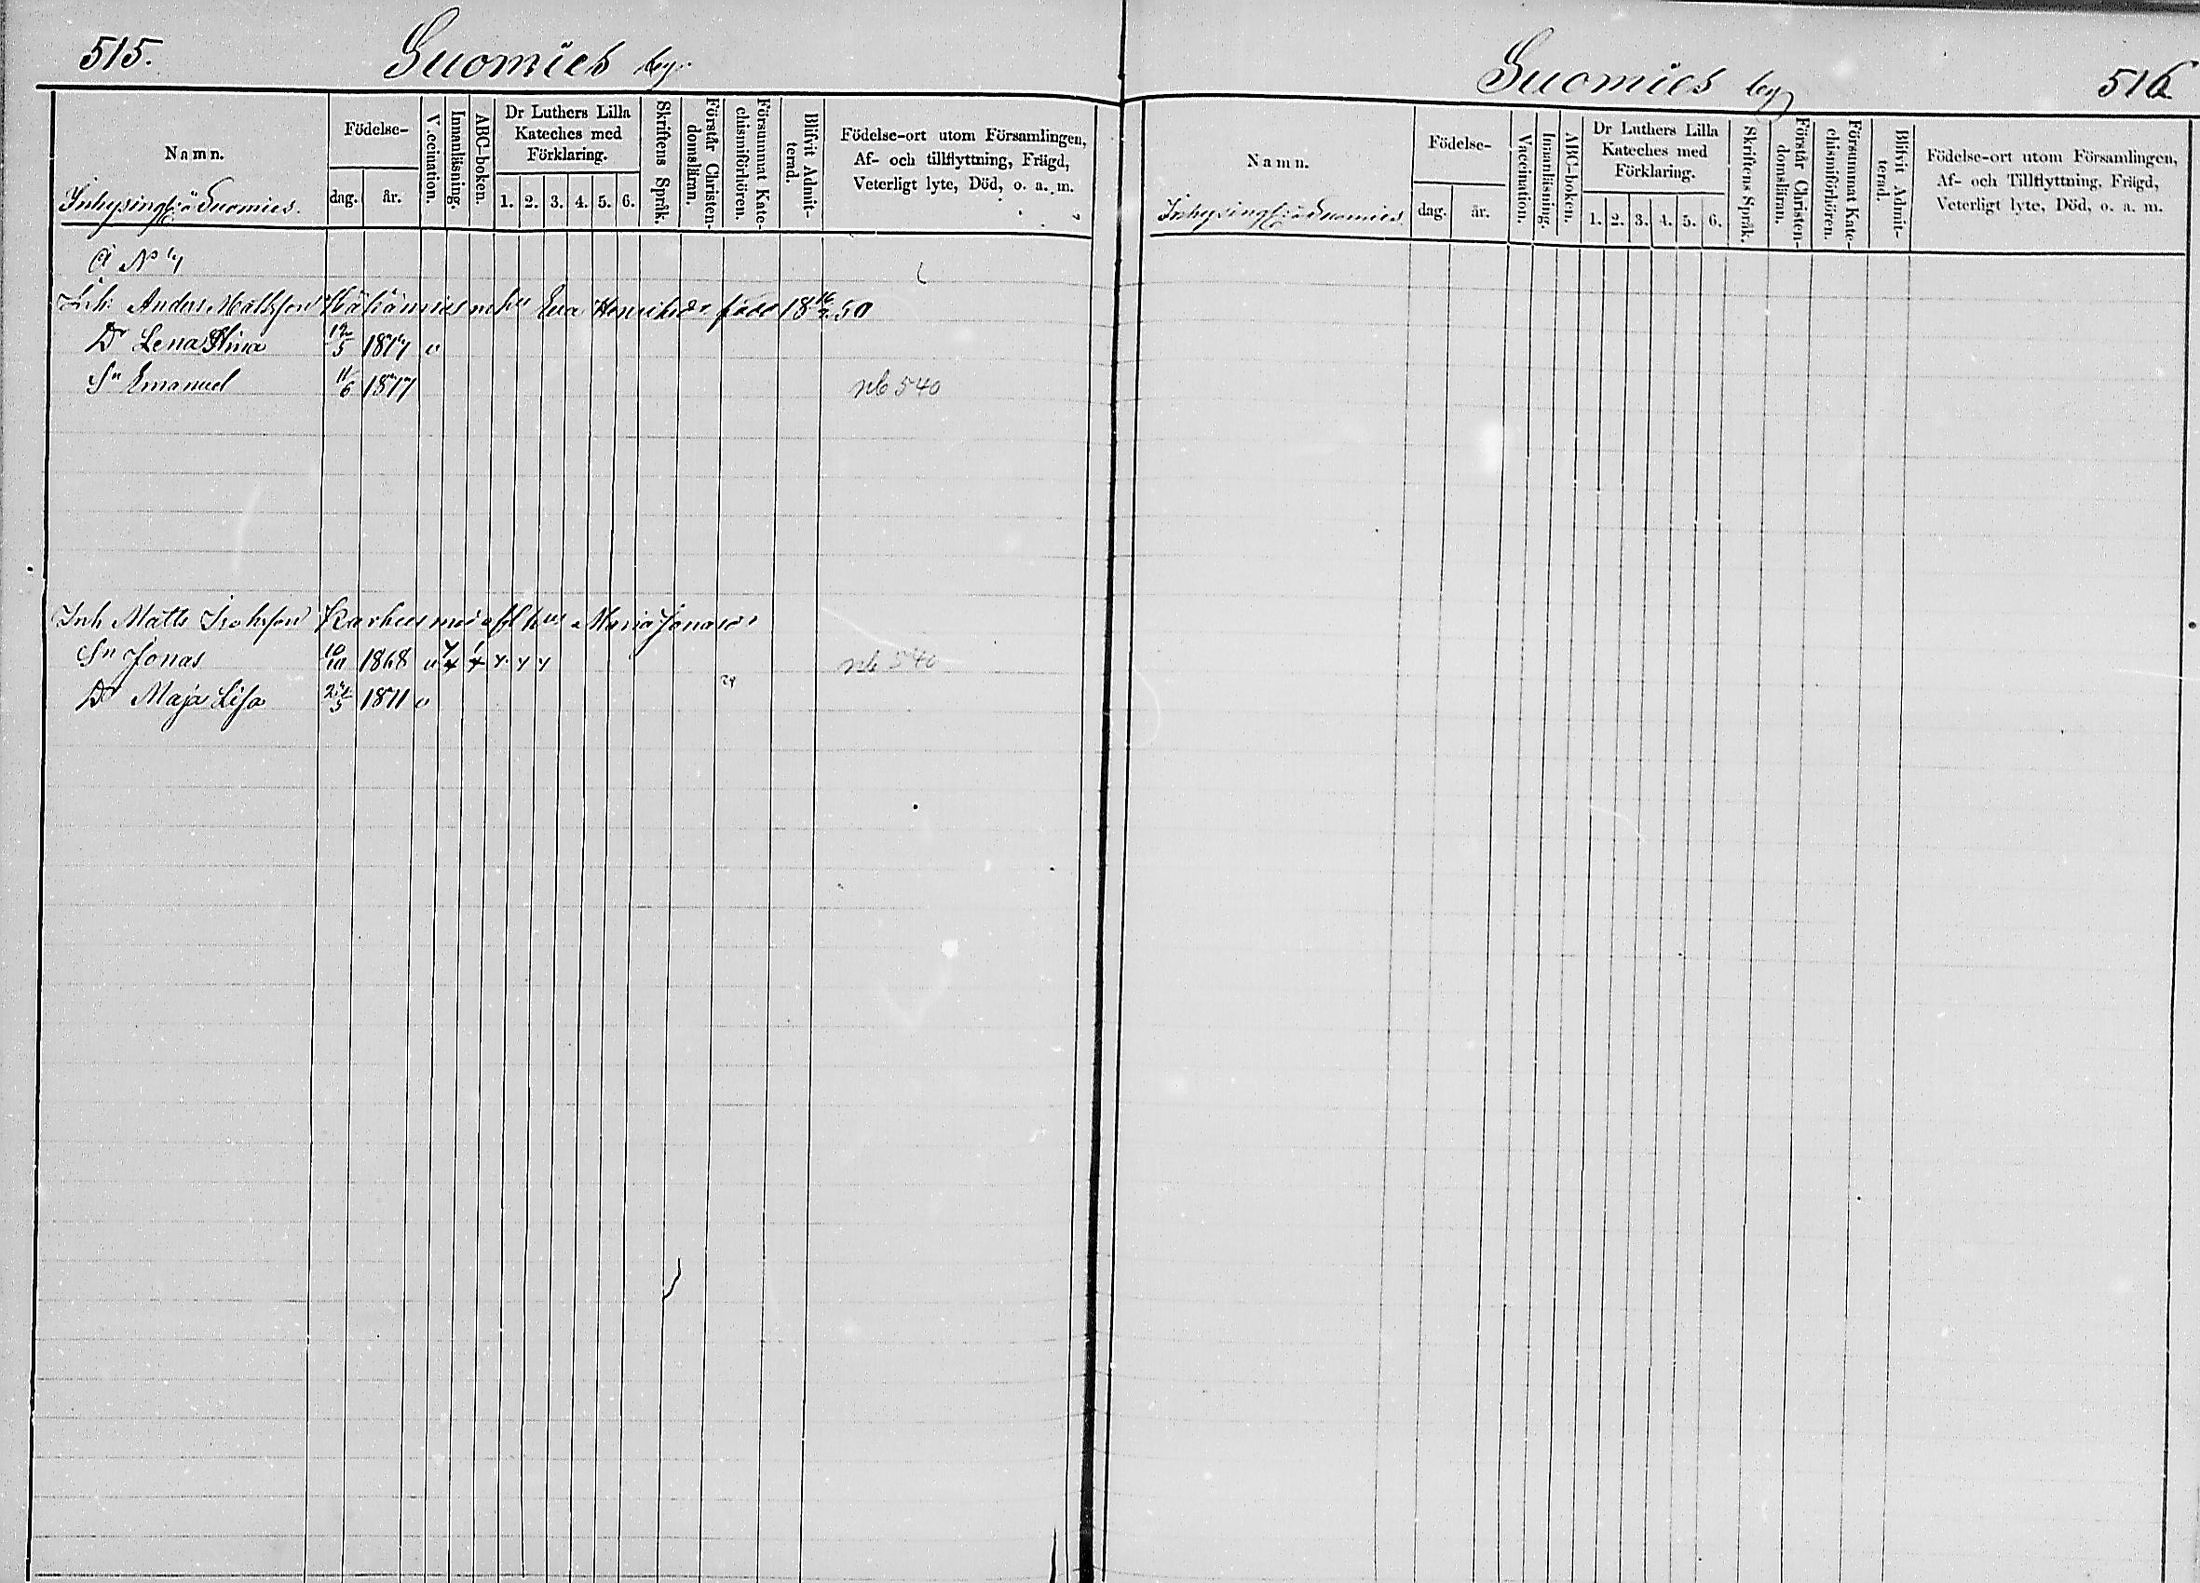 515.
Suomies by.
Namn.
Födelse-
dag.
år.
Vaccination.
Innanläsning.
ABC-boken.
Dr Luthers Lilla
Kateches med
Förklaring.
1. 2. 3. 4. 5. 6.
Skriftens Språk.
Förstår Christen-
domsläran.
Försummat Kate-
chismiförhören.
Blifvit Admit-
terad.
Födelse-ort utom Församlingen,
Af- och tillflyttning, Frägd,
Veterligt lyte, Död, o. a. m.
Inhysingh å Suomies.
Å No
Inh. Anders Mattsson Eva Henriksdr född 18 16/2 50
Dr Lena Stina 12/5 1877 v
Sn Emanuel 11/6 1877 nb 540
Inh Matts Karhu med Maria Jonasdr
Sn Jonas 10/10 1868 v nb 540
Dr Maja Lisa 1871 v
Suomies by
516
Namn.
Födelse-
dag.
år.
Vaccination.
Innanläsning.
ABC-boken.
Dr Luthers Lilla
Kateches med
Förklaring.
1. 2. 3. 4. 5. 6.
Skriftens Språk.
Förstår Christen-
domsläran.
Försummat Kate-
chismiförhören.
Blifvit Admit-
terad.
Födelse-ort utom Församlingen,
Af- och Tillflyttning, Frägd,
Veterligt lyte, Död, o. a. m.
Inhysingh å Suomies.